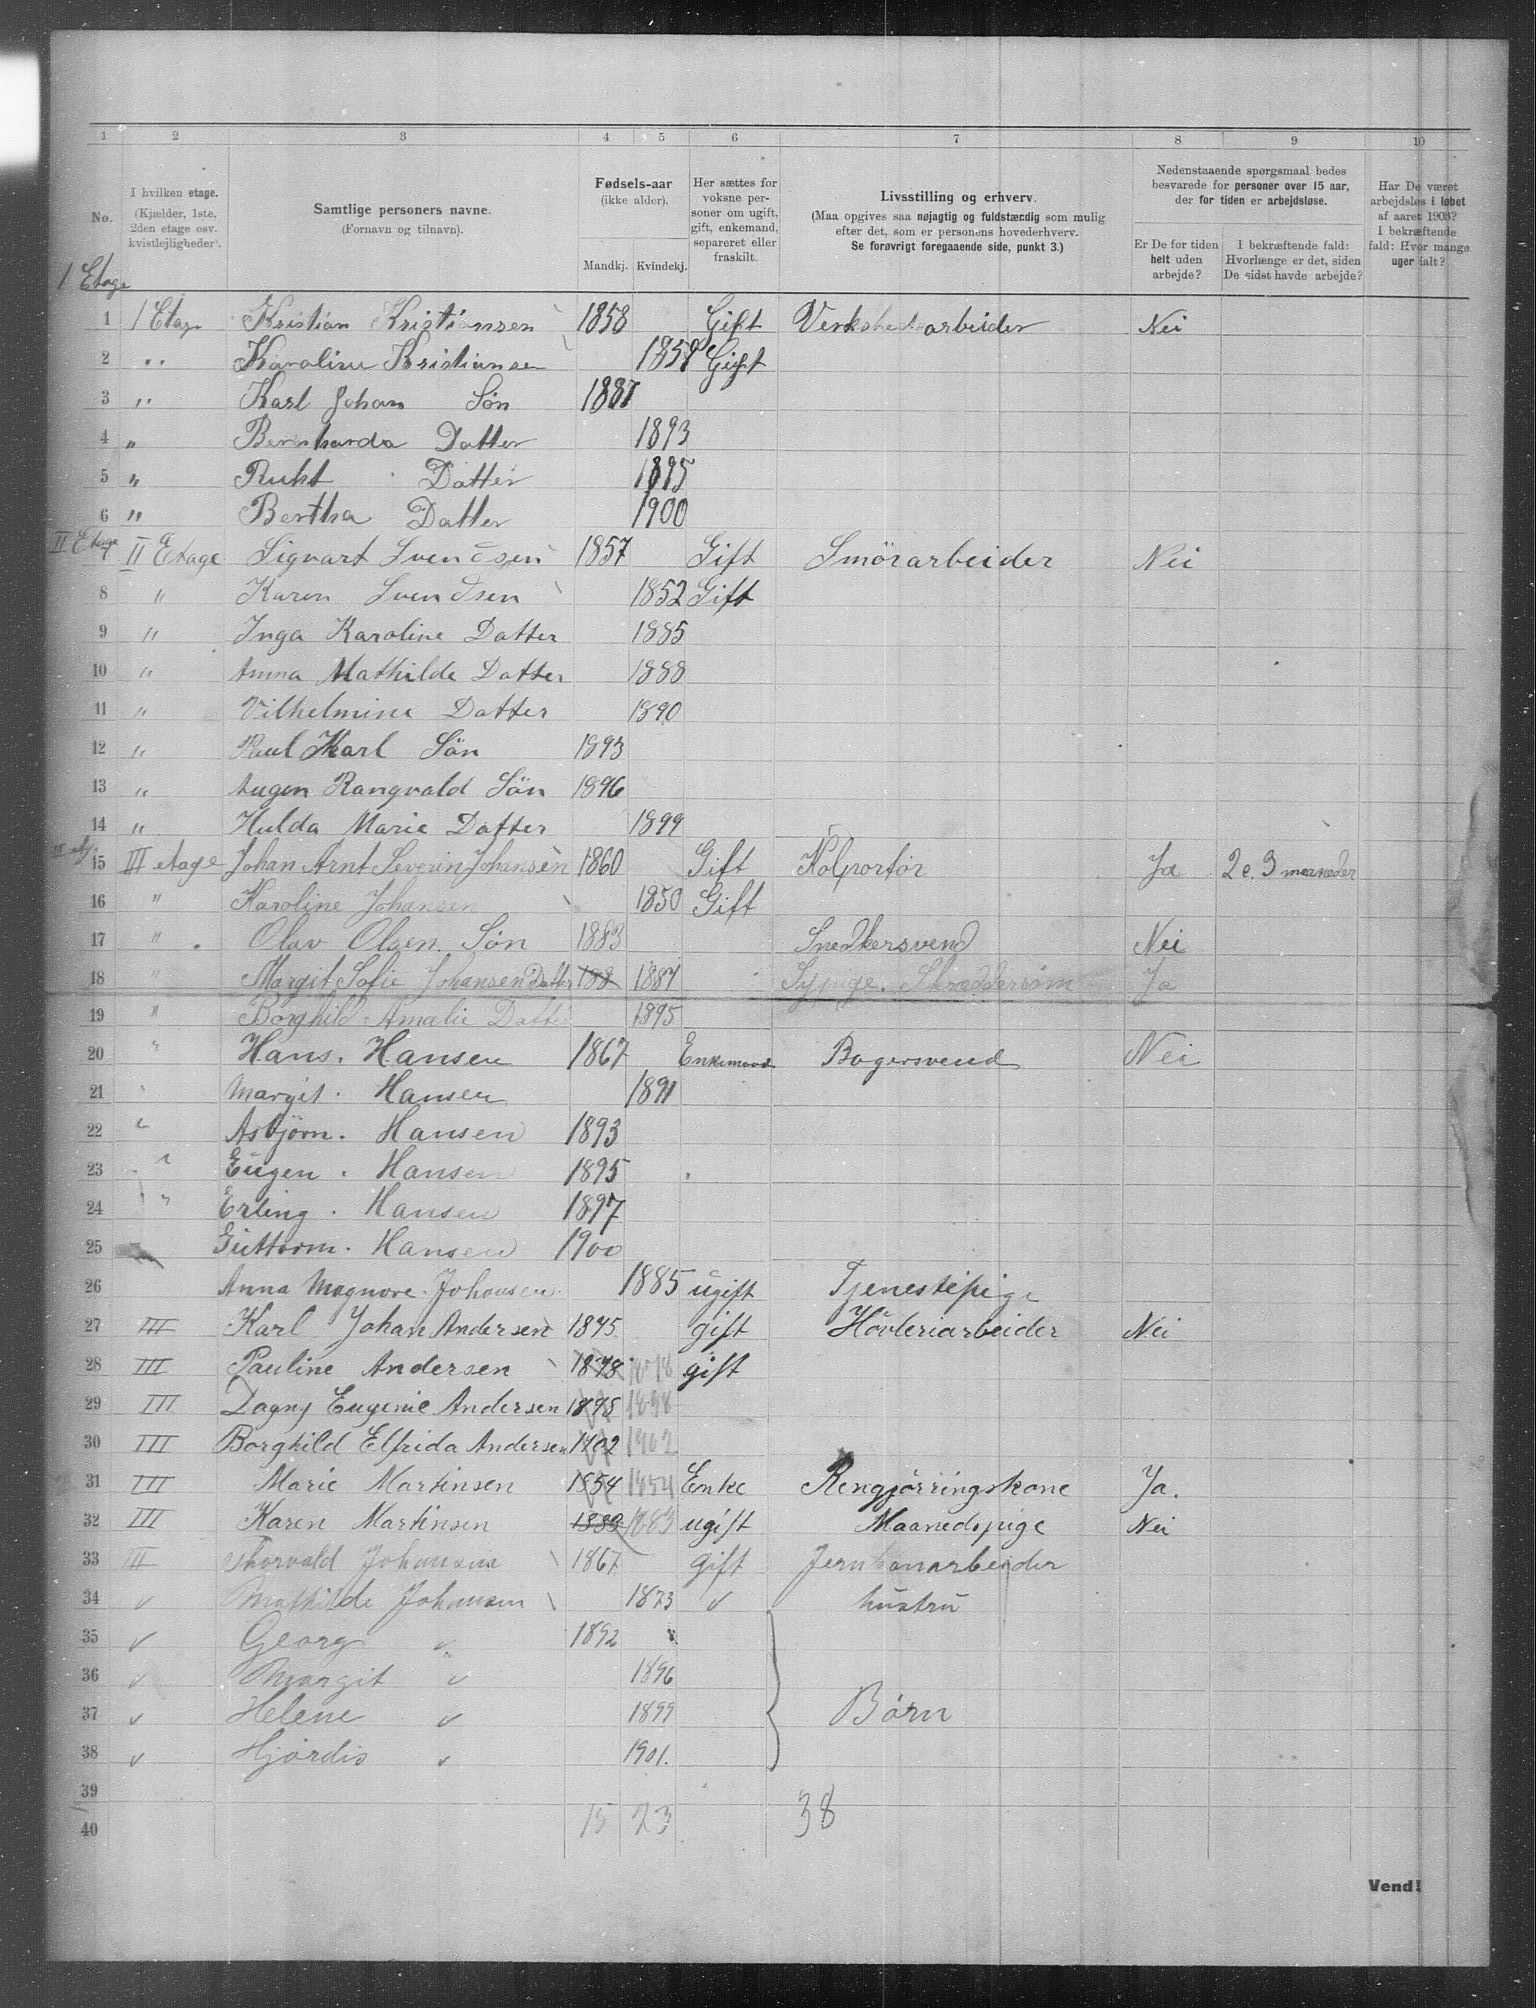 1 2 3 4 5 6 7 8 9 10
No.
I hvilken etage.
(Kjælder, 1ste, 2den etage osv. kvistlejligheder).
Samtlige personers navne.
(Fornavn og tilnavn).
Fødsels-aar
(ikke alder).
Mandkj. Kvindekj.
Her sættes for voksne personer om ugift, gift, enkemand, separeret eller fraskilt.
Livsstilling og erhverv.
(Maa opgives saa nøjagtig og fuldstændig som mulig efter det, som er personens hovederhverv.
Se forøvrigt foregaaende side, punkt 3.)
Nedenstaaende spørgsmaal bedes besvarede for personer over 15 aar, der for tiden er arbejdsløse.
Er De for tiden helt uden arbejde?
I bekræftende fald: Hvorlænge er det, siden De sidst havde arbejde?
Har De været arbejdsløs i løbet af aaret 1903? I bekræftende fald: Hvor mange uger ialt?
1 Etage
1 1 Etage Kristian Kristiansen 1858 Gift Verkstedarbeider Nei
2 " Karoline Kristiansen 1858 Gift
3 " Karl Johan Søn 1887
4 " Bernharda Datter 1893
5 " Ruht Datter 1895
6 " Bertha Datter 1900
II Etage
7 II Etage Sigvart Svendsen 1857 Gift Smörarbeider Nei
8 " Karen Svendsen 1852 Gift
9 " Inga Karoline Datter 1885
10 " Anna Mathilde Datter 1888
11 " Vilhelmine Datter 1890
12 " Paul Karl Sön 1893
13 " Augen Rangvald Sön 1896
14 " Hulda Marie Datter 1899
15 III etage Johan Arnt Severin Johansen 1860 Gift Kolportør Ja 2 e. 3 maaneder
16 " Karoline Johansen 1850 Gift
17 " Olav Olsen Søn 1883 Snedkersvend Nei
18 " Margit Sofie Johansen Datter 188 1887 Sypige. Skræddersøm Ja
19 " Borghild Amalie Datter 1895
20 " Hans. Hansen 1867 Enkemand Bagersvend Nei
21 " Margit. Hansen 1891
22 " Asbjørn. Hansen 1893
23 " Eugen. Hansen 1895
24 " Erling. Hansen 1897
25 " Guttorm. Hansen 1900
26 Anna Magnore Johansen 1885 ugift Tjenestepige
27 III Karl Johan Andersen 1875 gift Hövleriarbeider Nei
28 III Pauline Andersen 1878 1878 gift
29 III Dagny Eugenie Andersen 1898 1898
30 III Borghild Elfrida Andersen 1902 1902
31 III Marie Martinsen 1854 1854 Enke Rengjørringskone Ja.
32 III Karen Martinsen 1883 1883 ugift Maanedspige Nei
33 III Thorvald Johansen 1867 gift Jernbanarbeider
34 " Mathilde Johansen 1873 " hustru
35 " Georg " 1892
36 " Margit " 1896
37 " Helene " 1899 Børn
38 " Hjørdis " 1901.
39
40 15 23 38
Vend!